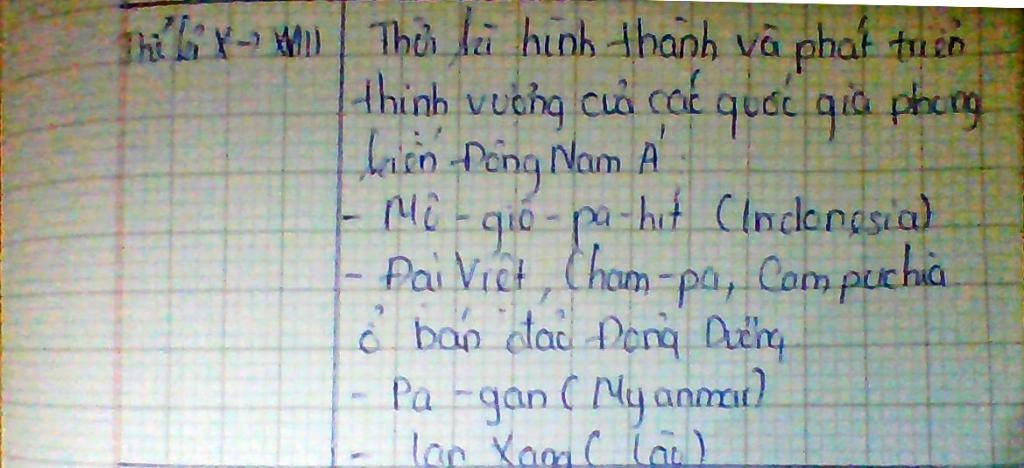 Thế kỉ X → XVIII
Thời kì hình thành và phát triển
thịnh vượng của các quốc gia phong
kiến Đông Nam Á
- Mô-giô-pa-hit (Indonesia)
- Đại Việt, Cham-pa, Campuchia
ở bán đảo Đông Dương
- Pa-gan (Myanmar)
- Lan Xang (Lào)